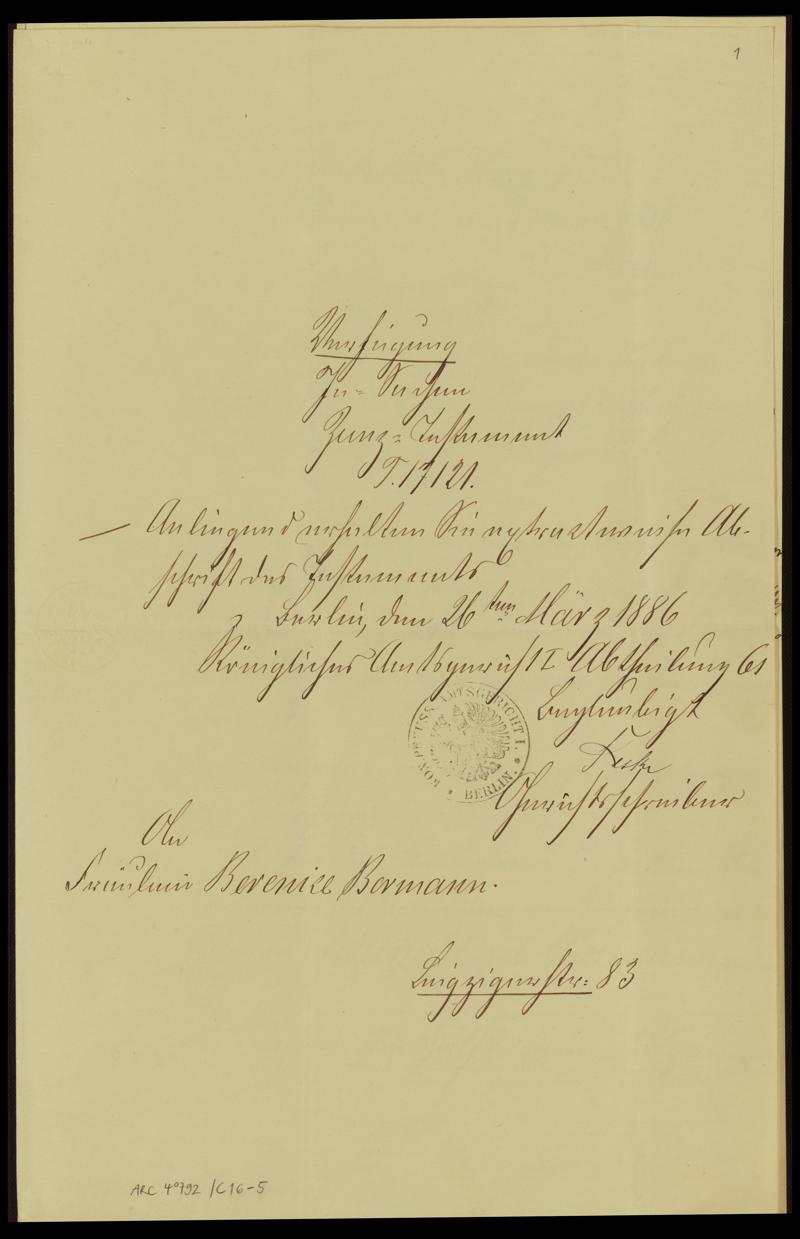 1
Verfügung
In Sachen
Zunz = Testament
T. 17121.
— Anliegend erhalten Sie extractweise Ab-
schrift des Testaments
Berlin, den 26ten März 1886
Königliches Amtsgericht I Abtheilung 61
Beglaubigt
KÖN. PREUSS. AMTSGERICHT I. * BERLIN. *
Gerichtsschreiber
An
Fräulein Berenice Bormann.
Leipzigerstr: 83
ARC 4°792 /C16-5